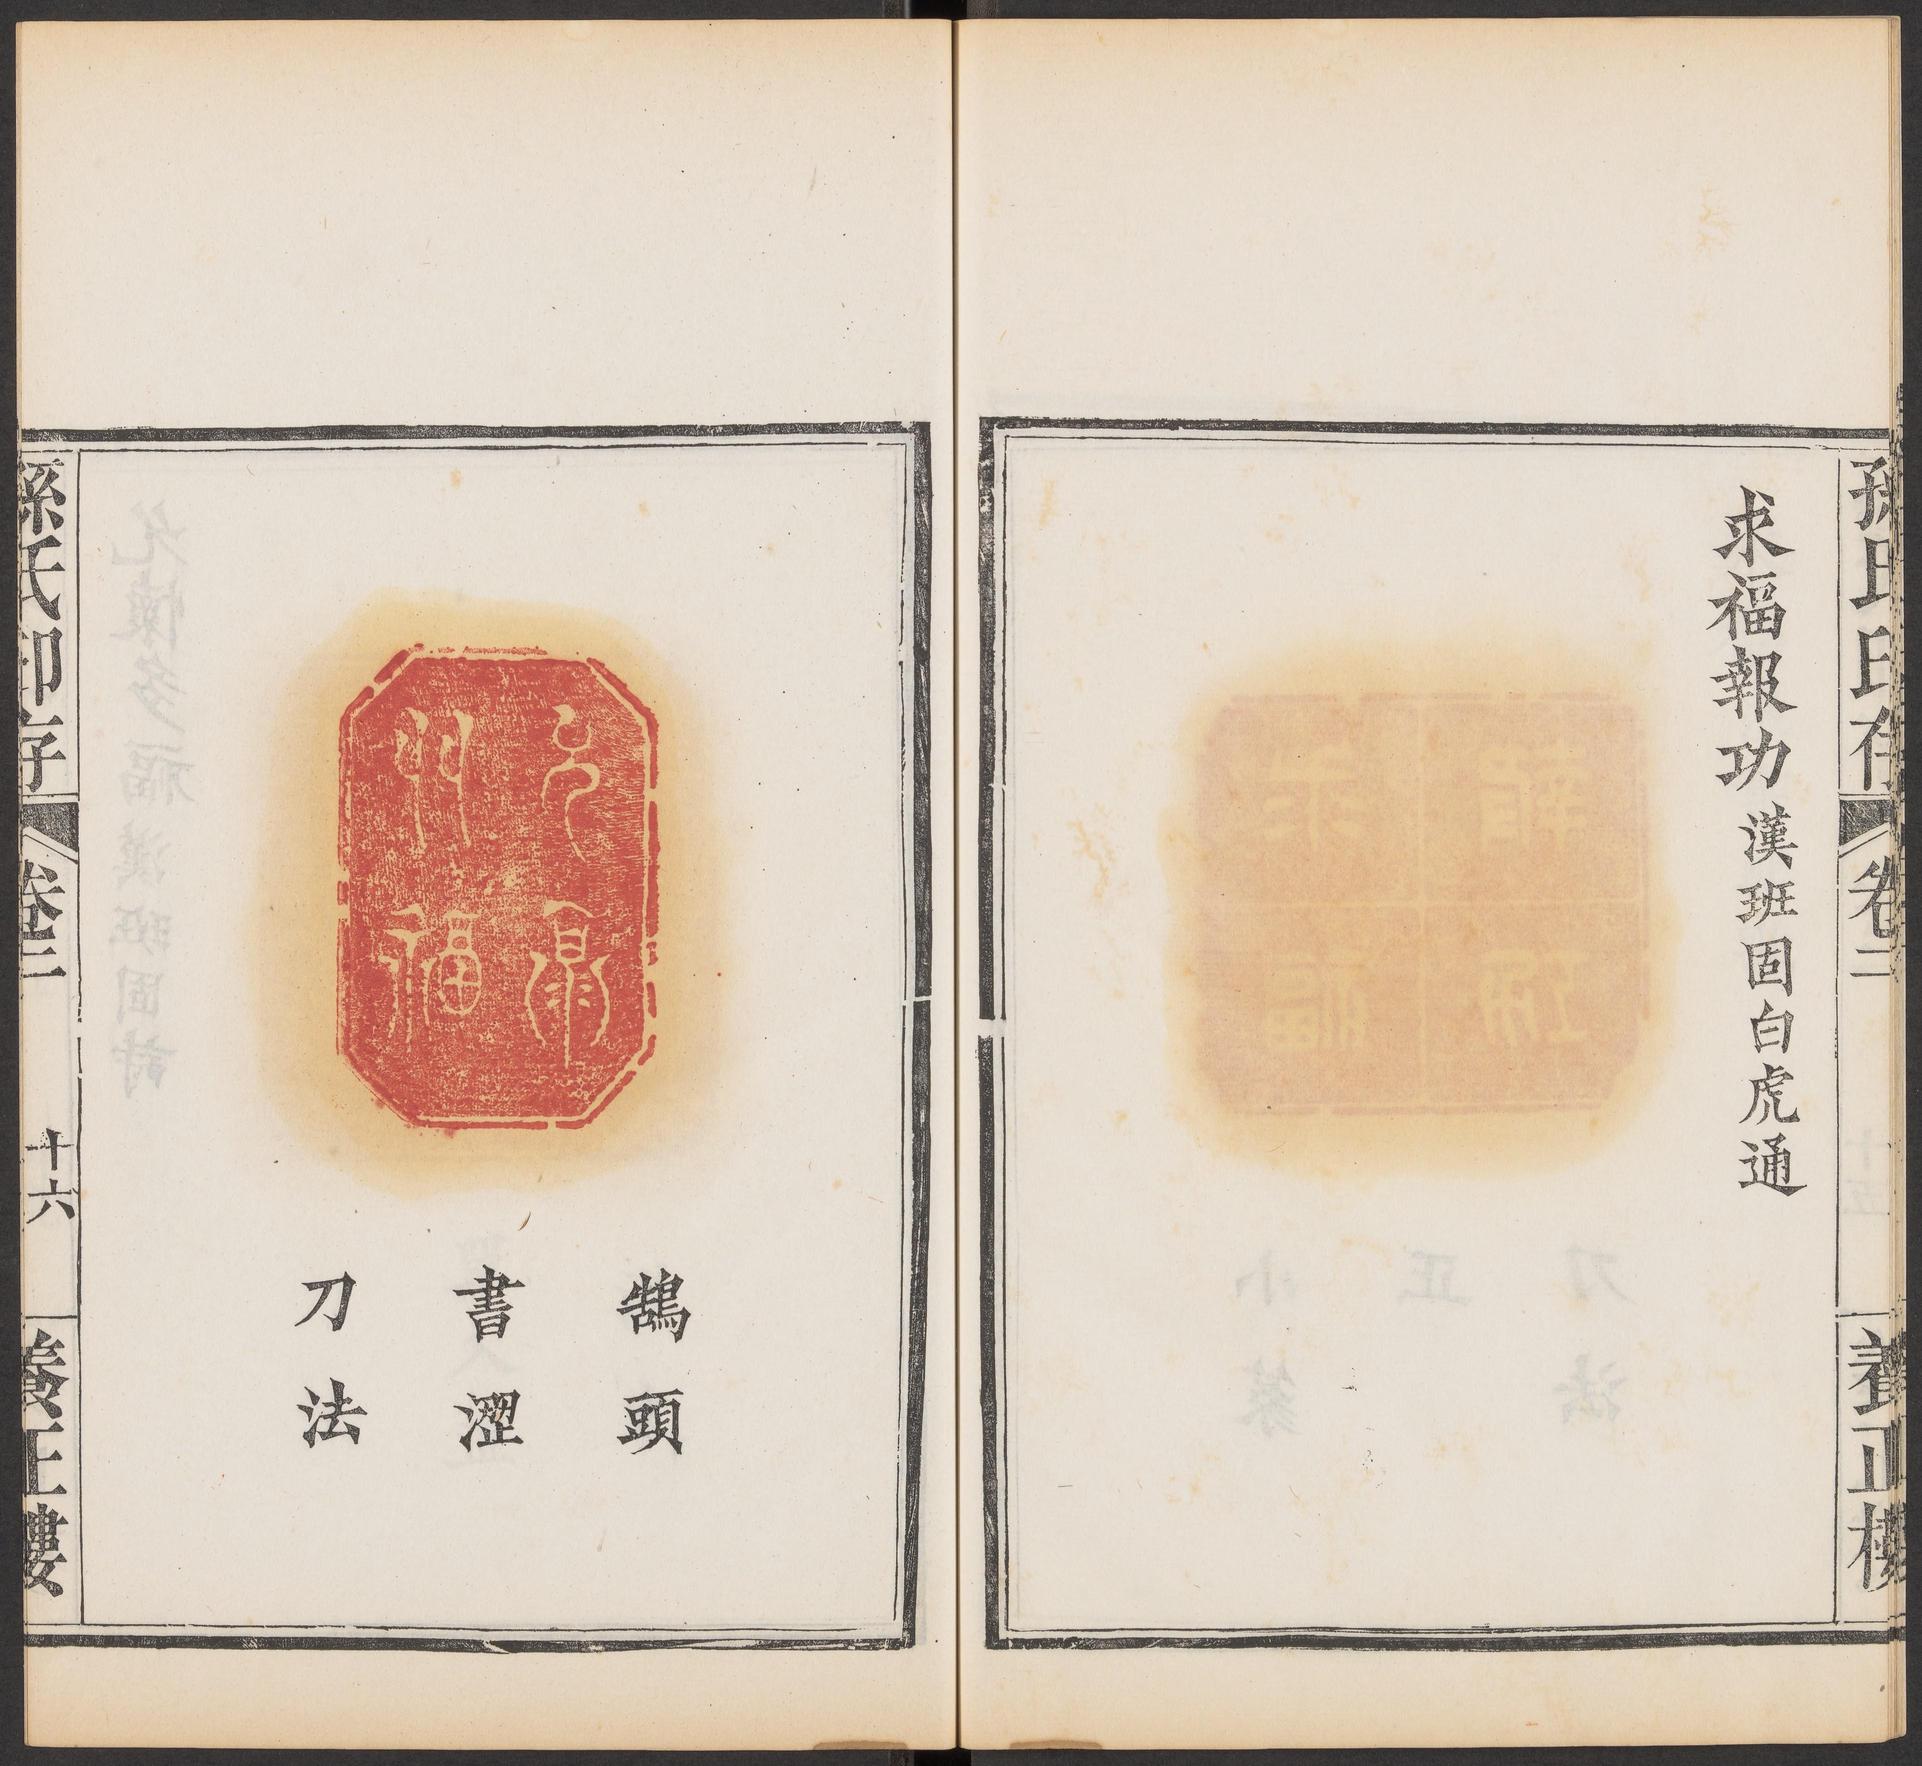 孫氏印存 卷二 養正樓
求福報功 漢班固白虎通
允懷多福
鵠頭
書澀
刀法
孫氏印存 卷二 十六 養正樓